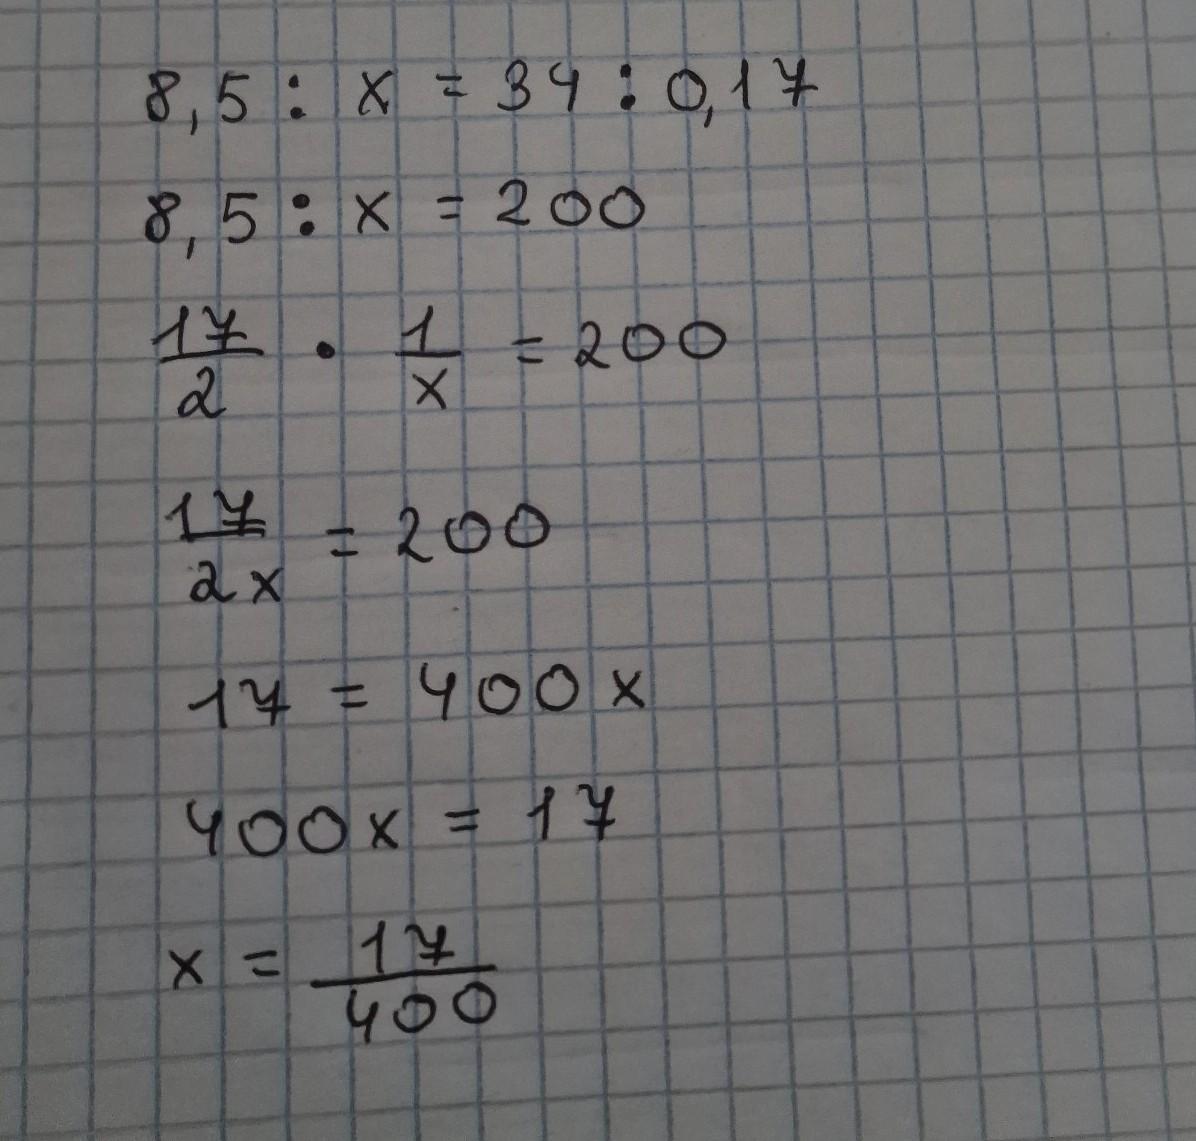 8,5 : x = 34 : 0,17
8,5 : x = 200
17/2 · 1/x = 200
17/2x = 200
17 = 400x
400x = 17
x = 17/400